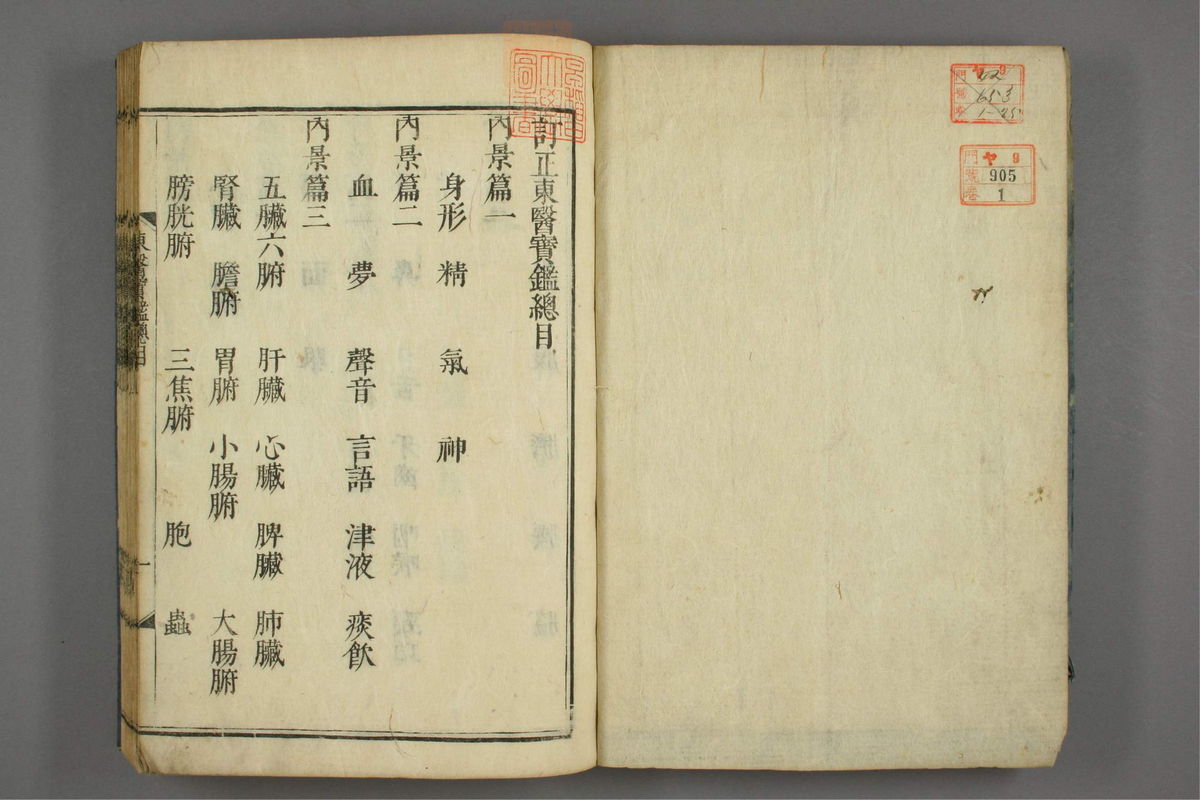 門 ヤ 9
號 653
卷 1-25
門 ヤ 9
號 905
卷 1
訂正東醫寶鑑總目
內景篇一
身形 精 氣 神
內景篇二
血 夢 聲音 言語 津液 痰飲
內景篇三
五臟六腑 肝臟 心臟 脾臟 肺臟
腎臟 膽腑 胃腑 小腸腑 大腸腑
膀胱腑 三焦腑 胞 蟲
東醫寶鑑總目 一